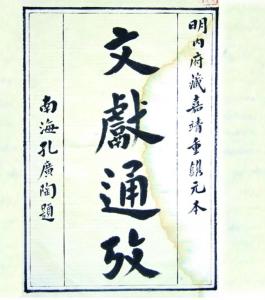 明內府藏嘉靖重雕元本
文獻通攷
南海孔廣陶題